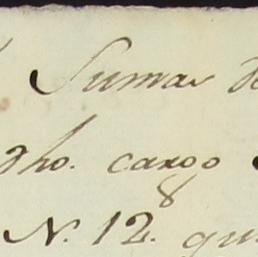 Sumas
dho. cargo
8
N. 12. qu